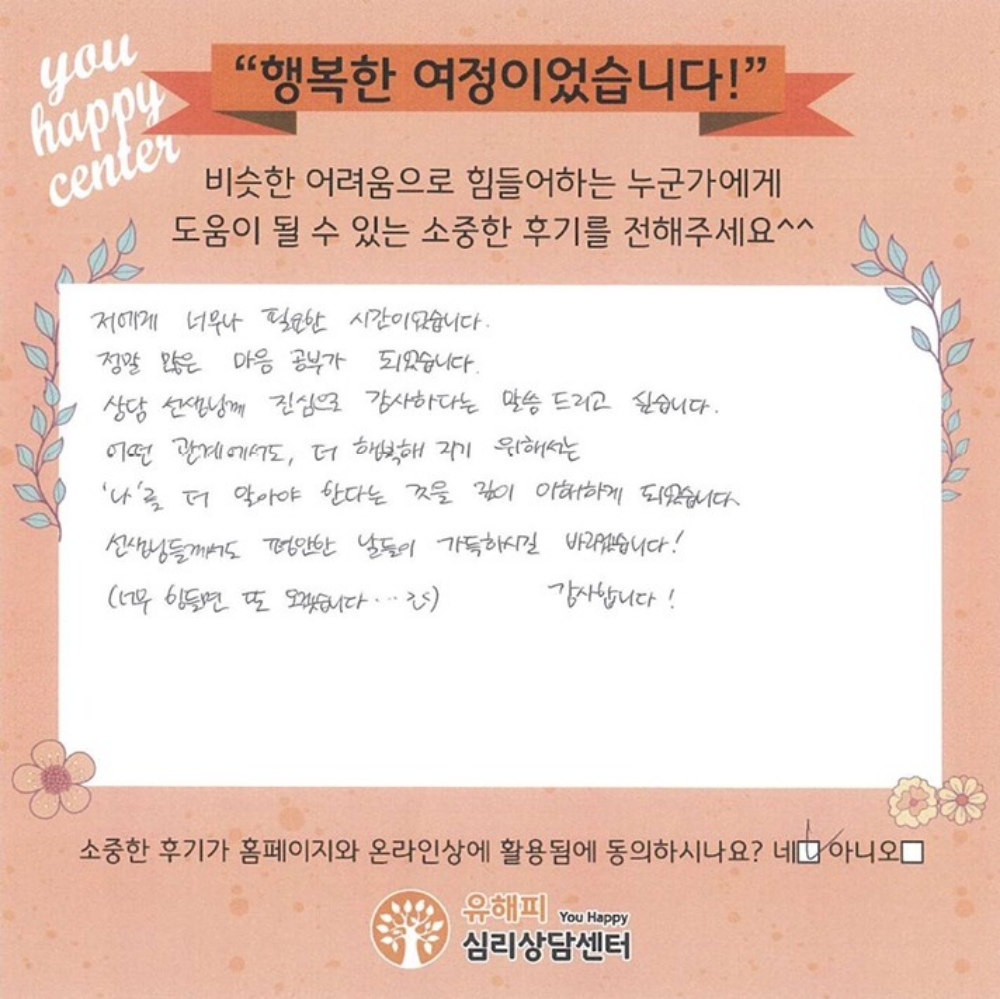 you
happy
center
“행복한 여정이었습니다!”
비슷한 어려움으로 힘들어하는 누군가에게
도움이 될 수 있는 소중한 후기를 전해주세요^^
저에게 너무나 필요한 시간이었습니다.
정말 많은 마음 공부가 되었습니다.
상담 선생님께 진심으로 감사하다는 말씀 드리고 싶습니다.
어떤 관계에서도, 더 행복해 지기 위해서는
'나'를 더 알아야 한다는 것을 깊이 이해하게 되었습니다.
선생님들께서도 평안한 날들이 가득하시길 바라겠습니다!
(너무 힘들면 또 오겠습니다...)
감사합니다!
소중한 후기가 홈페이지와 온라인상에 활용됨에 동의하시나요? 네□ 아니오□
유해피 You Happy
심리상담센터